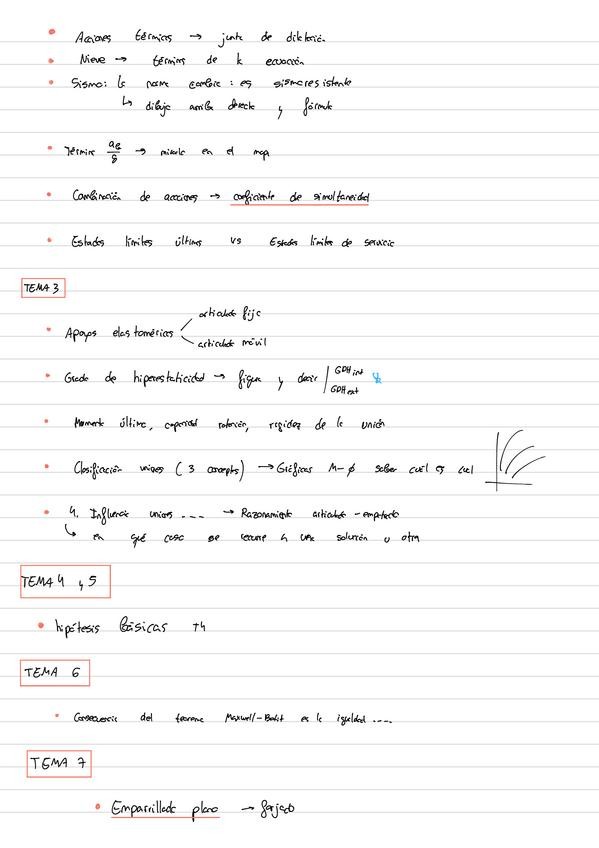 • Acciones térmicas → junta de dilatación
• Nieve → términos de la ecuación
• Sismo: la norma cambia: es sismorresistente
↳ dibujo arriba derecha y fórmula
• Término ab/g → mirarlo en el mapa
• Combinación de acciones → coeficiente de simultaneidad
• Estados límites últimos vs Estados límites de servicio
TEMA 3
• Apoyos elastoméricos
articulado fijo
articulado móvil
• Grado de hiperestaticidad → figura y decir
GDH int
GDH ext
• Momento último, capacidad rotación, rigidez de la unión
• Clasificación uniones (3 conceptos) → Gráficas M-ϕ saber cuál es cual
• 4. Influencia uniones --- → Razonamiento articulado - empotrado
↳ en qué caso se recurre a una solución u otra
TEMA 4 y 5
• hipótesis básicas T4
TEMA 6
• Consecuencia del teorema Maxwell-Betti es la igualdad ----
TEMA 7
• Emparrillado plano → forjado